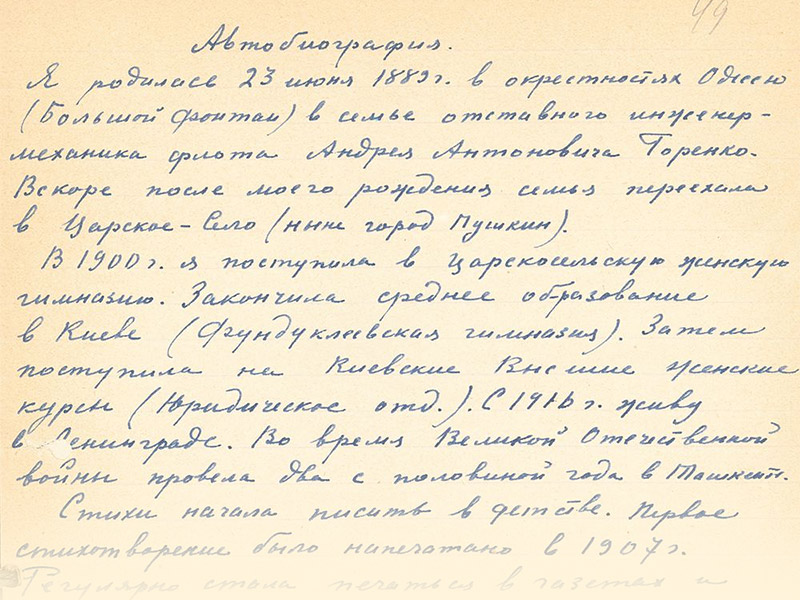 49
Автобиография.
Я родилась 23 июня 1889г. в окрестностях Одессы
(Большой Фонтан) в семье отставного инженер-
механика флота Андрея Антоновича Горенко.
Вскоре после моего рождения семья переехала
в Царское-Село (ныне город Пушкин).
В 1900г. я поступила в Царскосельскую женскую
гимназию. Закончила среднее образование
в Киеве (Фундуклеевская гимназия). Затем
поступила на Киевские Высшие женские
курсы (Юридическое отд.). С 1916г. живу
в Ленинграде. Во время Великой Отечественной
войны провела два с половиной года в Ташкент.
Стихи начала писать в детстве. Первое
стихотворение было напечатано в 1907г.
Регулярно стала печаться в газетах и